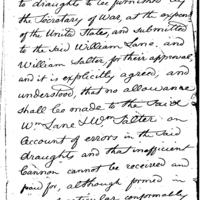 to draughts to be furnished by
the Secretary of War, at the expense
of the United States, and submitted
to the said William Lane, and
William Salter, for their approval,
and it is explicitly agreed, and
understood, that no allowance
shall be made to the said
Wm Lane & Wm Salter on
account of errors in the said
draughts and that inefficent
Cannon cannot be received and
paid for, although proved in
particular conformably